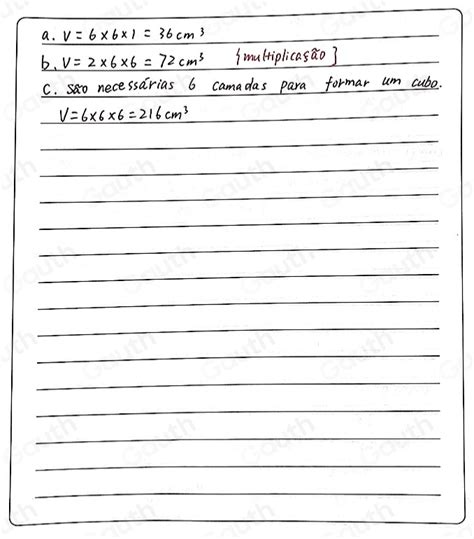 a. V = 6 x 6 x 1 = 36 cm³
b. V = 2 x 6 x 6 = 72 cm³ {multiplicação}
C. são necessárias 6 camadas para formar um cubo.
V = 6 x 6 x 6 = 216 cm³